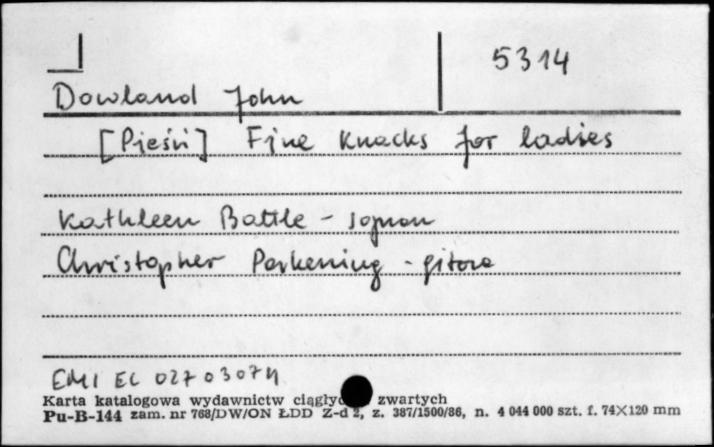 5314
Dowland John
[Pieśń] Fine Knacks for ladies
Kathleen Battle - sopran
Christopher Parkening - gitara
EMI EL 02703074
Karta katalogowa wydawnictw ciągłych zwartych
Pu-B-144 zam. nr 768/DW/ON ŁDD Z-d 2, z. 387/1500/86, n. 4 044 000 szt. f. 74×120 mm